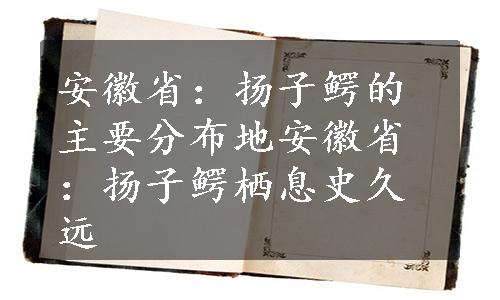 安徽省：扬子鳄的
主要分布地安徽省
：扬子鳄栖息史久
远